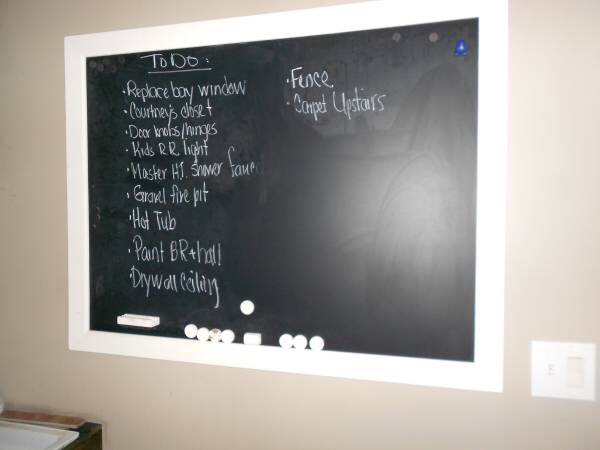 To Do:
• Replace bay window
• Courtney's closet
• Door knobs/hinges
• Kids R.R. light
• Master shower
• Gravel fire pit
• Hot Tub
• Paint BR + hall
• Drywall ceiling
• Fence
• Carpet Upstairs